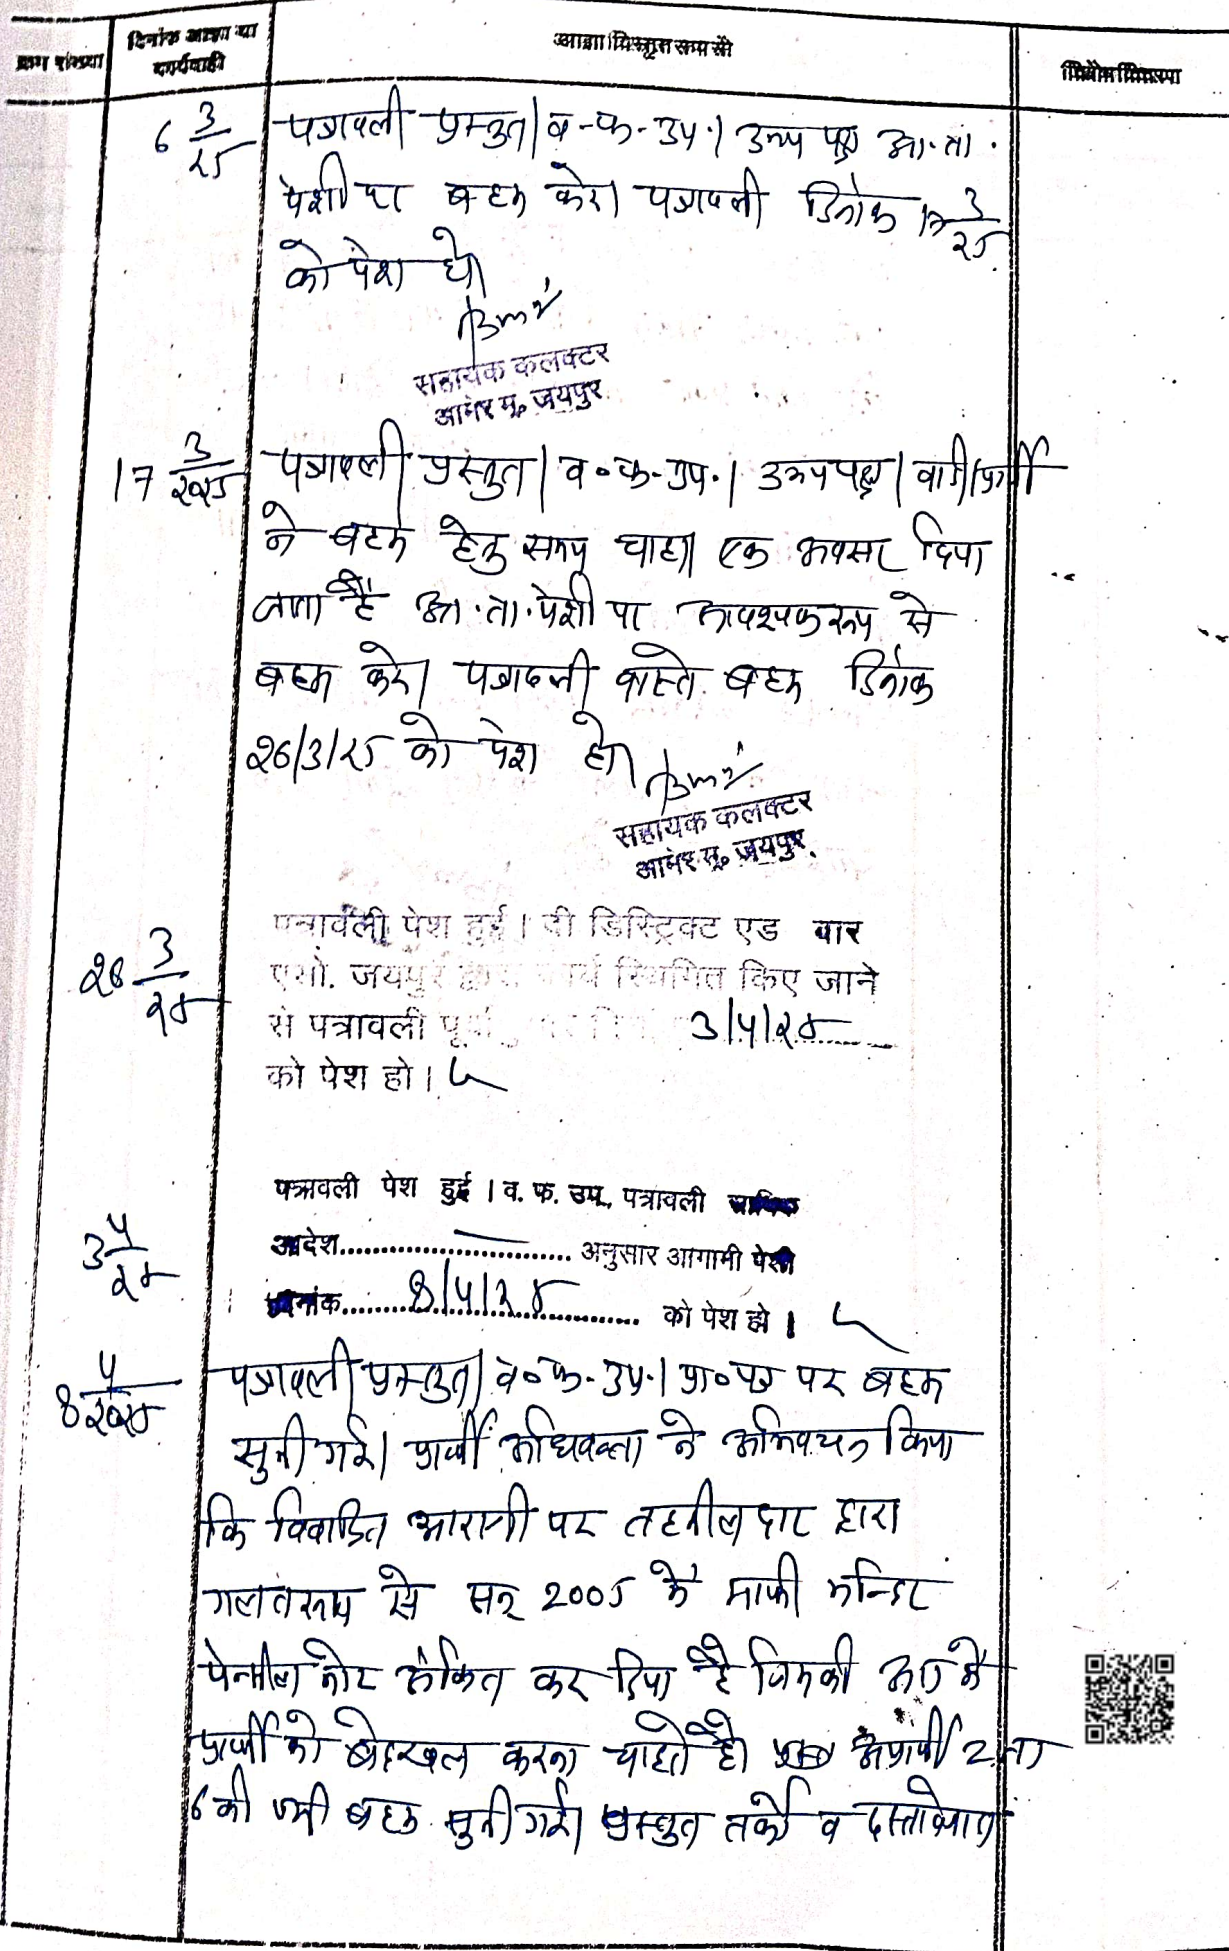 क्रम संख्या
दिनांक आज्ञा या
कार्यवाही
आज्ञा विस्तृत रूप से
6 3/25 पत्रावली प्रस्तुत। व-फ-उप.। उभय पक्ष आ.ता.
पेशी पर बहस करें। पत्रावली दिनांक 17 3/25
को पेश हो।
सहायक कलक्टर
आमेर मु. जयपुर
17 3/2025 पत्रावली प्रस्तुत। व०फ-उप.। उभयपक्ष। वादी/प्रार्थी
ने बहस हेतु समय चाहा। एक अवसर दिया
जाता है आ.ता.पेशी पर आवश्यक रूप से
बहस करें। पत्रावली वास्ते बहस दिनांक
26/3/25 को पेश हो।
सहायक कलक्टर
आमेर मु. जयपुर
26 3/25 पत्रावली पेश हुई। दी डिस्ट्रिक्ट एड बार
एसो. जयपुर द्वारा कार्य स्थगित किए जाने
से पत्रावली 3/4/25
को पेश हो।
पत्रावली पेश हुई। व. फ. उप. पत्रावली साबिक
3 4/25 आदेश.............................. अनुसार आगामी पेशी
दिनांक......8/4/25.............. को पेश हो।
8 4/2025 पत्रावली प्रस्तुत। व०फ-उप.। प्रा०पत्र पर बहस
सुनी गई। प्रार्थी अधिवक्ता ने अभिवचन किया
कि विवादित आराजी पर तहसीलदार द्वारा
गलत रूप से सन् 2005 में माफी मन्दिर
पेन्सील नोट अंकित कर दिया है जिसकी आड में
प्रार्थी को बेदखल करना चाहते है। अप्रार्थी 2 ता
6 की भी बहस सुनी गई। प्रस्तुत तर्को व दस्तावेजात